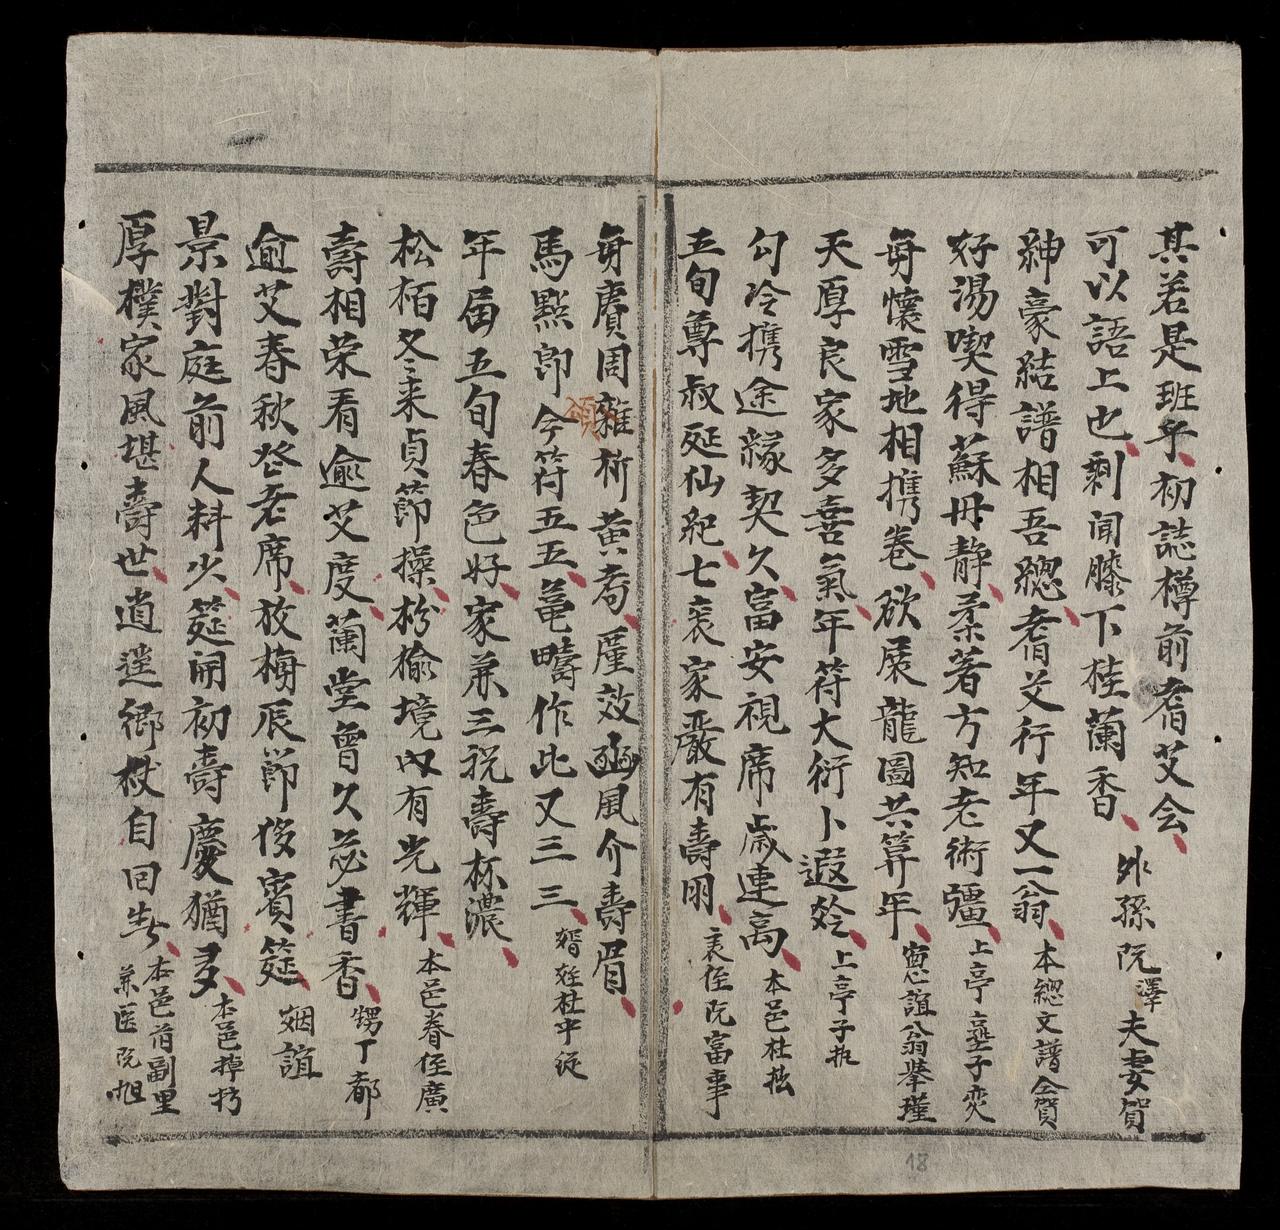 其若是班乎初誌樽前耆艾会
可以語上也剩闻膝下桂蘭香外孫阮澤夫妻賀
紳豪結譜相吾總耆艾行年又一翁本總文譜仝賀
好湯喫得蘇毋静柔著方知老術彊上亭壑子奕
每懷雪地相携卷欲展龍圖共算年窻誼翁拳瑾
天厚良家多喜氣年符大衍卜遐齡上亭子批
勾冷携途緣契久富安視席歲連高本邑杜松
五旬尊叔延仙紀七袠家嚴有壽明表侄阮富事
每賡周雅頌祈黄耇厪效豳風介壽眉
馬點郎今符五五亀疇作比又三三婿姪杜中定
年届五旬春色好家兼三祝壽杯濃
松栢冬来貞節操枌榆境内有光輝本邑眷侄廣
壽相荣看逾艾度蘭堂曾久苾書香甥丁都
逾艾春秋登老席放梅辰節侈賓筵姻誼
景對庭前人料少筵開初壽慶猶多本邑掉抒
厚樸家風堪壽世逍遥鄉杖自回春本邑前副里兼医阮旭
18